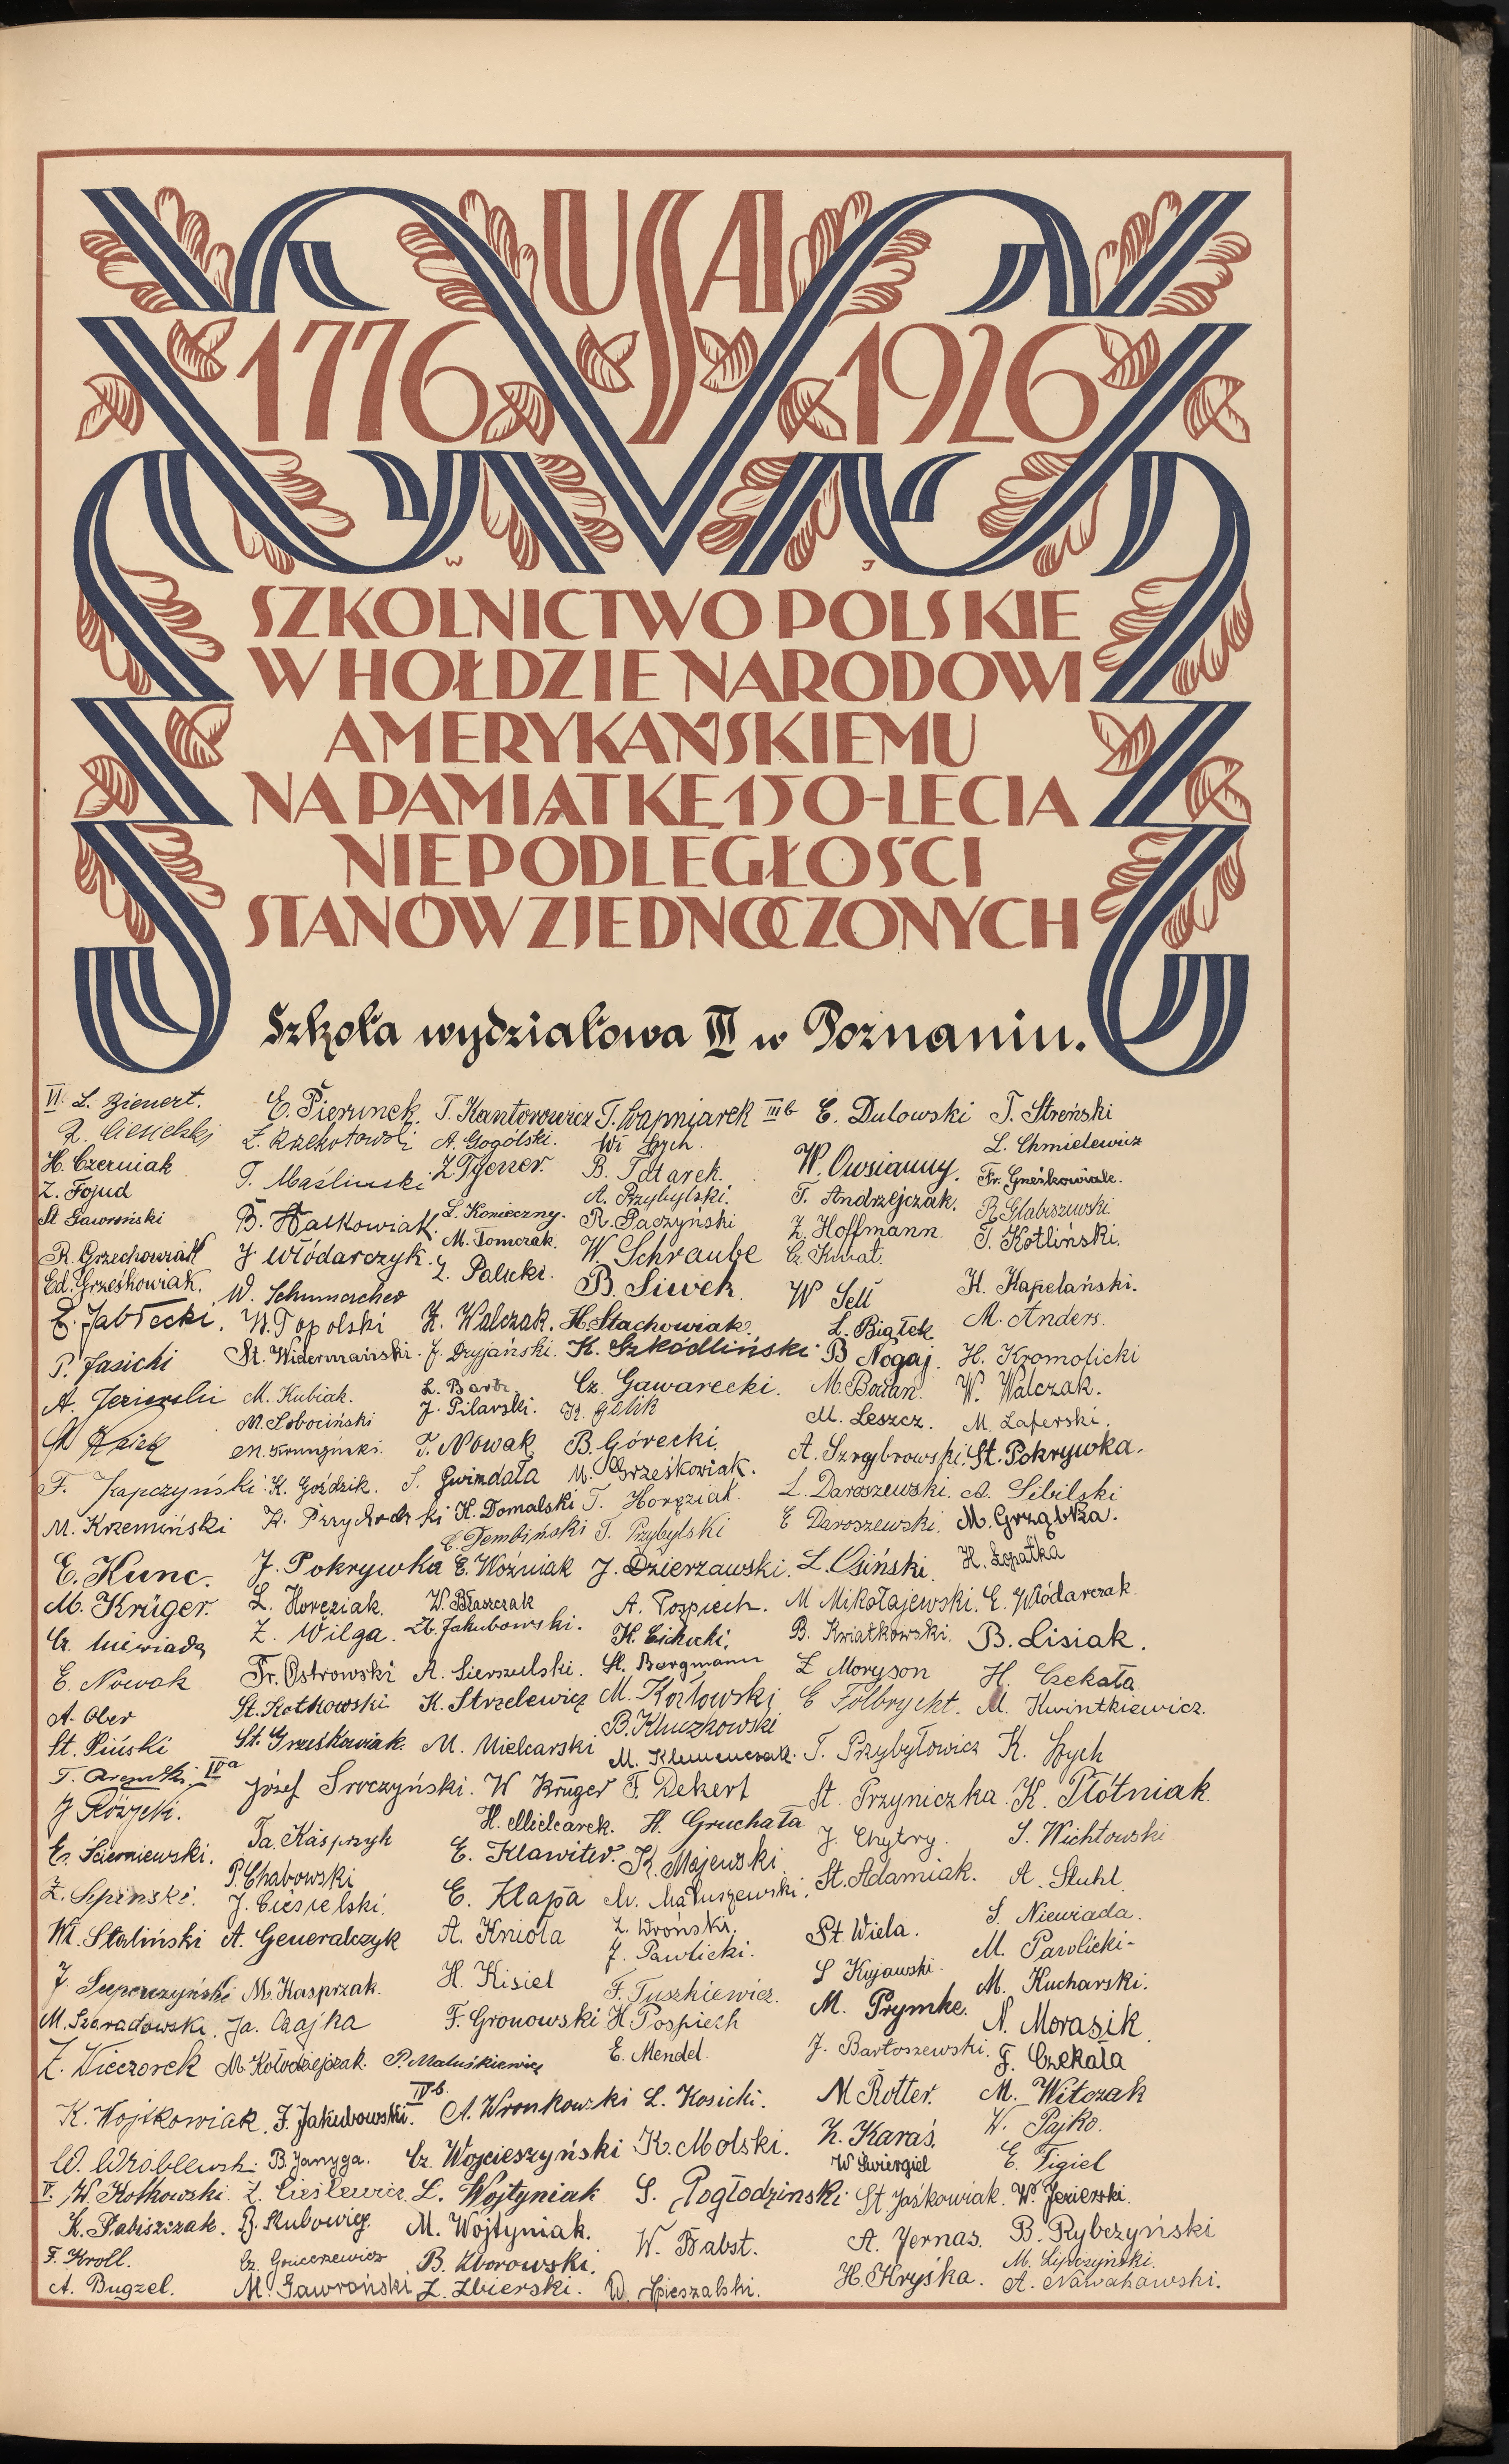 USA
1776 1926
W J
SZKOLNICTWO POLSKIE
W HOŁDZIE NARODOWI
AMERYKAŃSKIEMU
NA PAMIĄTKĘ 150-LECIA
NIEPODLEGŁOŚCI
STANÓW ZJEDNOCZONYCH
Szkoła wydziałowa III w Poznaniu.
VI. L. Bienert.
H. Czerniak
Z. Fojud
St Gawroński
R. Grzechowiak
Ed. Grześkowiak.
E. Jabłecki.
P. Jasicki
A.
F. Kapczyński
M. Krzemiński
E. Kunc.
M. Krüger.
Cz. Niewiada
E. Nowak
A. Ober
St. Piński
T. IVa
J Różycki.
Cz. Ścierniewski.
Z. Lipiński.
Wł. Staliński
J.
M. Szaradowski.
Z. Wieczorek
K. Wojtkowiak.
W. Wróblewski
V. W. Kotkowski.
K. Pabiszczak.
F. Kroll.
A. Bugzel.
E. Pierunek.
Z.
T. Maślinski
B. Walkowiak.
J Włódarczyk.
W. Schumacher
W. Topolski
St. Widermański.
M. Kubiak.
M. Sobociński
M.
K. Goździk.
Z. Przychodzki
J. Pokrywka
L. Horęziak.
Z. Wilga.
Fr. Ostrowski
St. Kotkowski
St. Grześkowiak.
Józef Sroczyński.
Ja. Kasprzyk
P. Chabowski
J. Ciesielski.
A. Generalczyk
M. Kasprzak.
Ja. Czajka
M. Kołodziejczak.
J. Jakubowski.
B. Janyga.
Z. Cieślewicz.
B. Skubowicz.
Cz.
M. Gawroński
T. Kantorowicz
A. Gogólski.
Z.
L. Konieczny.
M. Tomczak.
Z. Palicki.
Z. Walczak.
J. Dryjański.
L.
J. Pilarski.
T. Nowak
S. Gwindała
K. Domalski
C. Dembiński
E. Woźniak
W. Błaszczak
Zb. Jakubowski.
A. Sierszulski.
K. Strzelewicz
M. Mielcarski
W Krüger
H. Mielcarek.
E. Klawiter.
E. Kłapa
A. Knioła
H. Kisiel
F. Gronowski
P. Maluśkiewicz
IVb.
A. Wronkowski
Cz. Wojcieszyński
L. Wojtyniak
M. Wojtyniak.
B. Zborowski.
Z. Zbierski.
T. Wapniarek
Wł
B. Tatarek.
A. Przybylski.
R. Paczyński
W. Schraube
B. Siwek
H. Stachowiak.
K. Szkódliński
Cz. Gawarecki.
K.
B. Górecki.
M. Grześkowiak.
T. Horęziak.
T. Przybylski
J. Dzierzawski.
A. Pospiech.
H. Cichocki.
St. Bergmann
M. Kozłowski
B. Kluczkowski
M. Klimenczak.
F. Dekert
H. Gruchała
K. Majewski
M. Matuszewski.
Z. Wroński.
J. Pawlicki.
F. Tuszkiewicz.
H Pospiech
E. Mendel.
L. Kosicki.
K. Molski.
S. Pogłodzinski
W. Babst.
W. Spieszalski.
IIIb E. Dulowski
W. Owsianny.
T. Andrzejczak.
Z. Hoffmann.
Cz. Kwiat.
W Sell
L. Białek
B Nogaj.
M. Bocian.
M. Leszcz.
A. Szrajbrowski.
L. Daroszewski.
E Daroszewski.
L. Osiński.
M Mikołajewski.
B. Kwiatkowski.
Z Moryson
E Folbrycht.
T. Przybyłowicz
St. Przyniczka.
J. Chytry.
St. Adamiak.
St. Wiela.
S Kujawski.
M. Prymke.
J. Bartoszewski.
M Rotter.
Z. Karaś.
W Świergiel
St Jaśkowiak.
A. Jernas.
H. Kryśka.
T. Streński
L. Chmielewicz
Fr. Gneśkowiak.
R. Glabiszewski.
T. Kotliński.
H. Kapelański.
M. Anders.
H. Kromolicki
W. Walczak.
M. Laferski.
St. Pokrywka.
A. Sibilski
M. Grząbka.
H. Łopatka
E. Włódarczak
B. Lisiak.
H. Czekała
M. Kwintkiewicz.
K. Szych
K. Płótniak.
S. Wichtowski
A. Stuhl.
S. Niewiada.
M. Pawlicki-
M. Kucharski.
N. Morasik.
F. Czekała
M. Witczak
W. Pajko.
E. Figiel
W. Jezierski.
B. Rybczyński
M. Lipczyński.
A. Nawahawski.